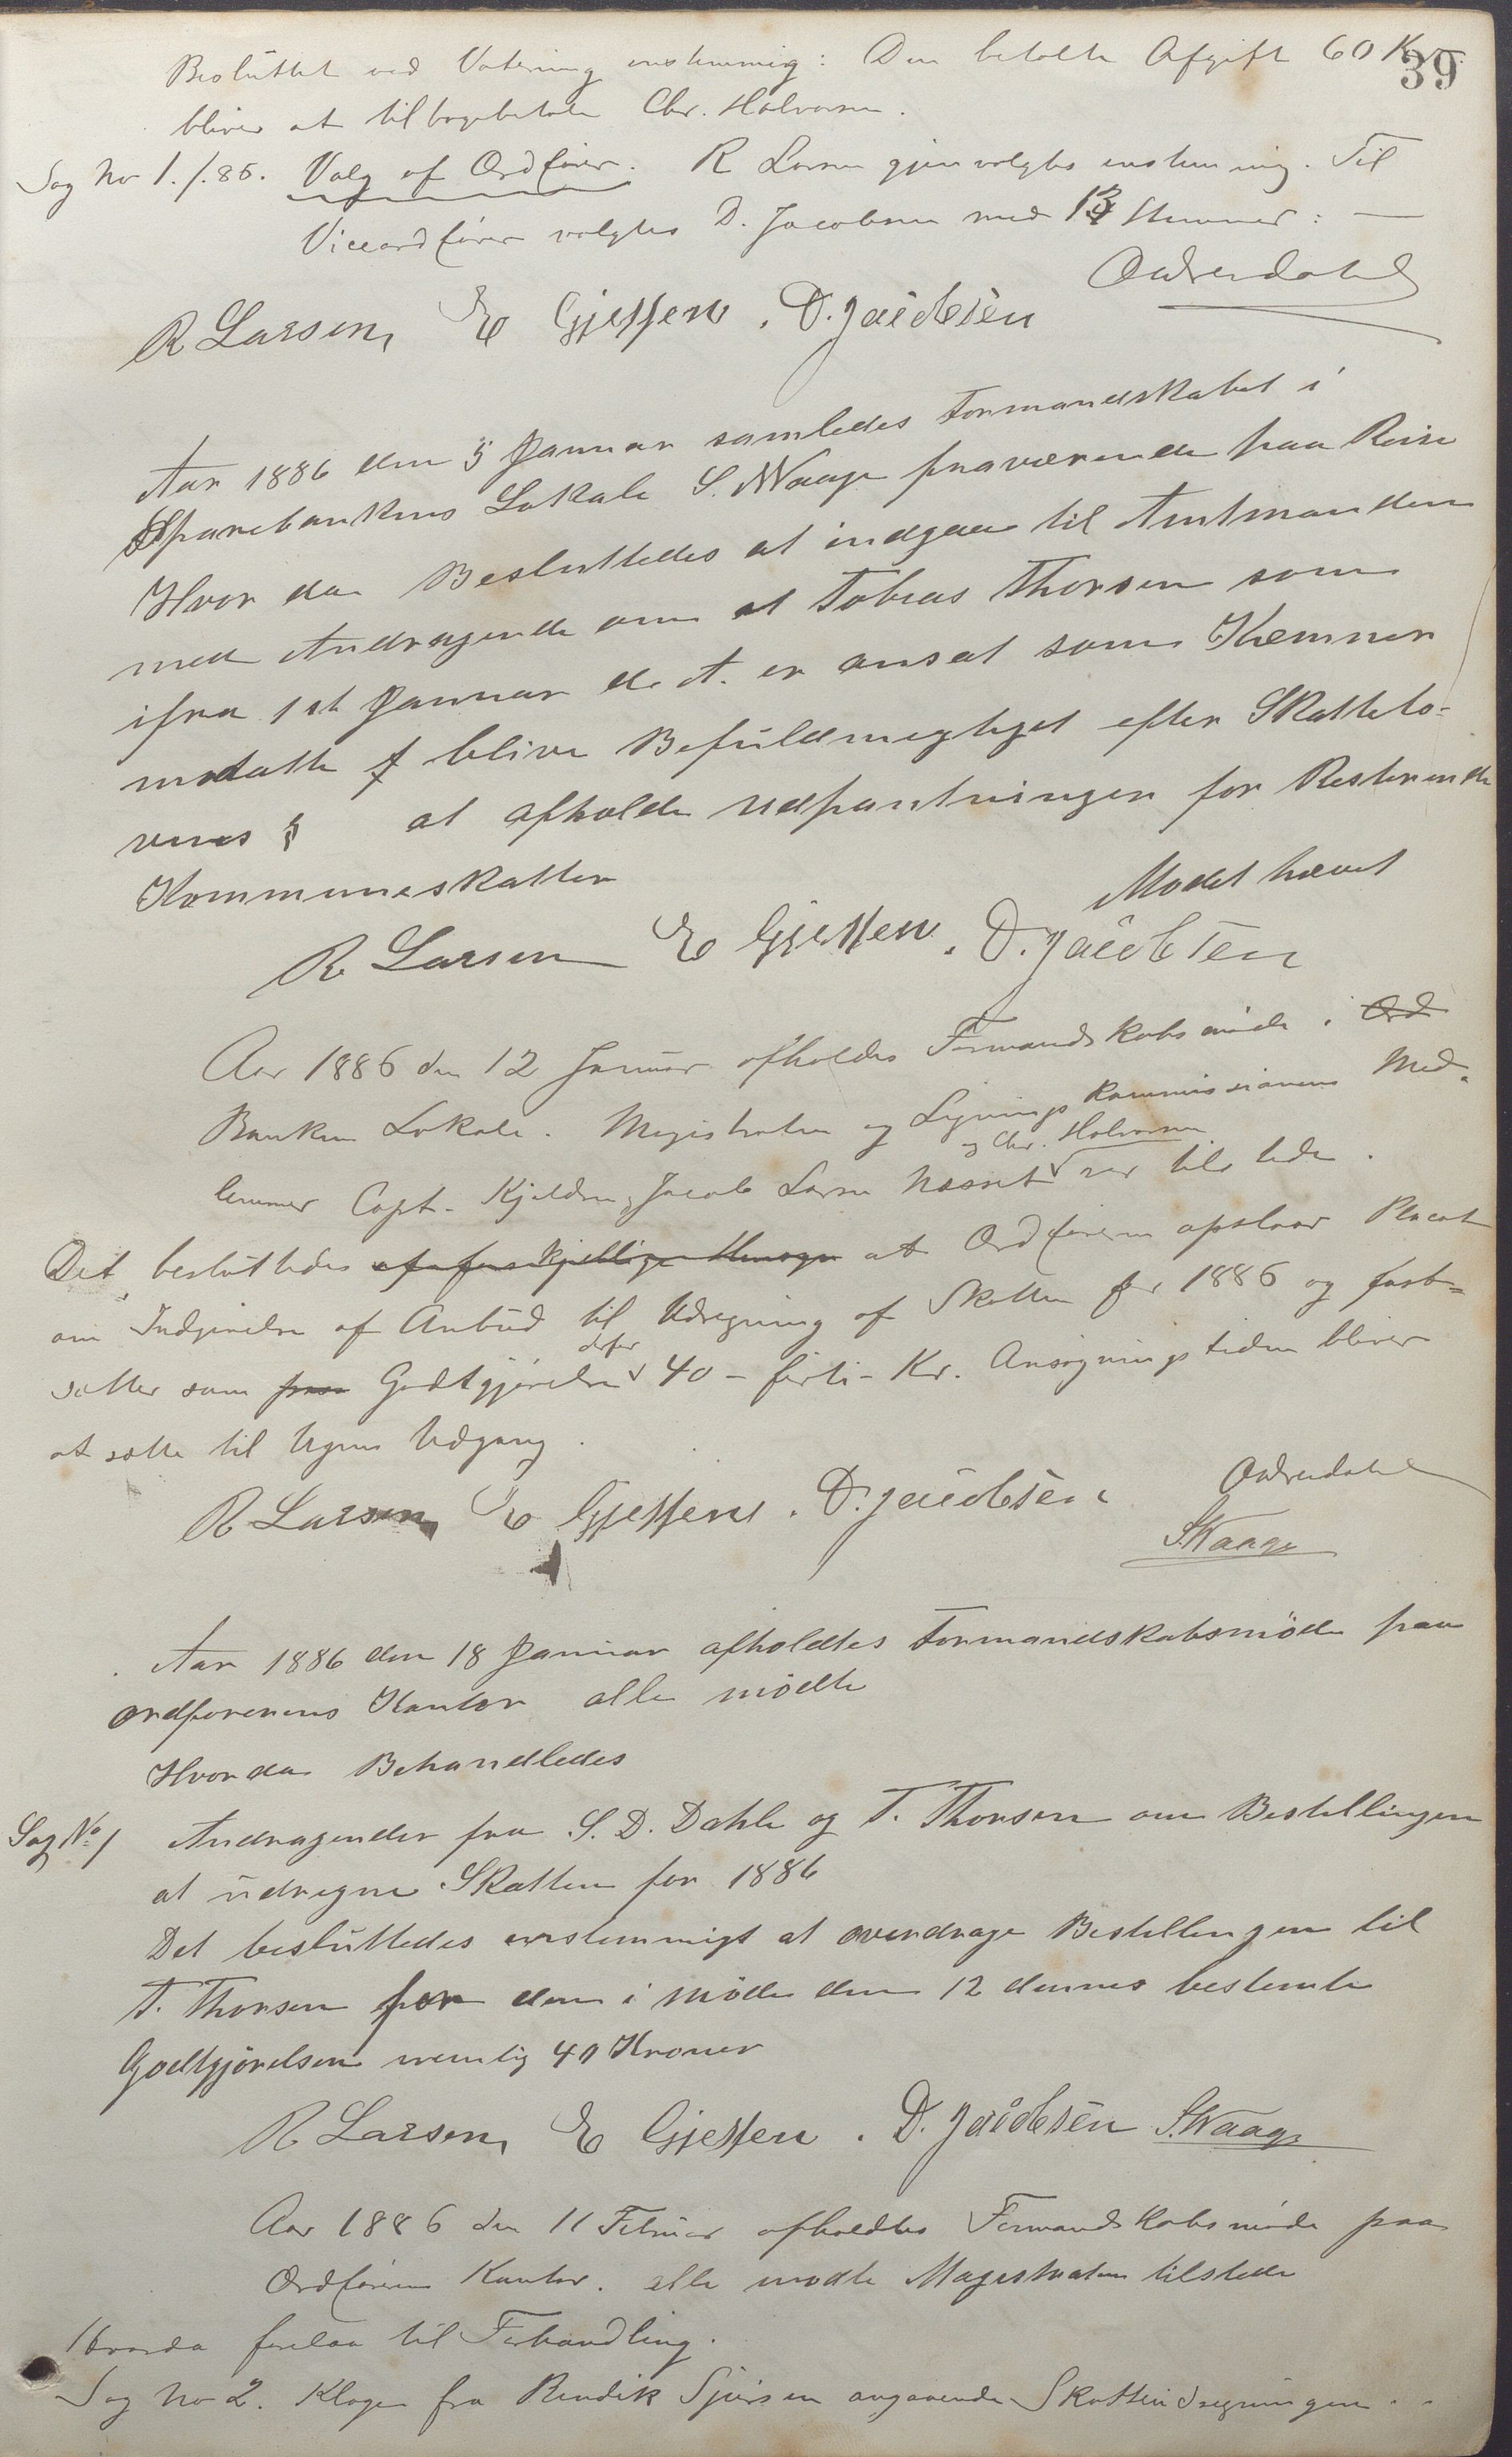 39
Besluttet ved Votering enstemmig: Den betalte Afgift 60 Kr.
bliver at tilbagebetale Chr. Halvorsen.
Sag No 1./.86. Valg af Ordfører. R Larsen gjenvalgtes enstemmig. Til
Viceordfører valgtes D. Jacobsen med 13 Stemmer: —
R Larsen, E Gjessen. D. Jacobsen
Aar 1886 den 5 Januar samledes Formandskabet i
Sparebankens Lokale S. Waage fraværende paa Reise
Hvor da Besluttedes at indgaa til Amtmanden
med Andragende om at Tobias Thorsen som
ifra 1st Januar d. A. er ansat som Kæmner
maatte blive Befuldmægtiget efter Skattelo-
vens § at afholde Udpantninger for Resterende
Kommuneskatter
Mødet hævet
R Larsen E Gjessen. D. Jacobsen
Aar 1886 den 12 Januar afholdes Formandskabsmøde i Ord
Bankens Lokale. Magistraten og Lignings Kommissionens Med-
og Chr. Halvorsen
lemmer Capt. Kjeldsen, Jacob Larsen Næsset var tilstede.
Det besluttedes af forskjellige Hensyn at Ordføreren opslaar Placat
om Indgivelse af Anbud til Udregning af Skatten for 1886 og fast-
derfor
sætter som Godtgjørelse 40 - førti - Kr. Ansøgningstiden bliver
at sætte til Ugens Udgang.
R Larsen E Gjessen. D. Jacobsen
S. Waage
Aar 1886 den 18 Januar afholdtes Formandskabsmøde paa
ordførerens Kontor alle mødte
Hvor da Behandledes
Sag No 1 Andragender fra S. D. Dahle og T. Thorsen om Bestillingen
at udregne Skatten for 1886
Det besluttedes enstemmigt at overdrage Bestillingen til
T. Thorsen for den i møde den 12 dennes bestemte
Godtgjørelsen nemlig 40 Kroner
R Larsen, E Gjessen. D. Jacobsen S. Waage
Aar 1886 den 11 Februar afholdtes Formandskabsmøde paa
Ordførerens Kontor. alle mødte Magistraten tilstede
Hvorda forelaa til Forhandling.
Sag No 2. Klage fra Bendik Sjursen angaaende Skatteudregningen..